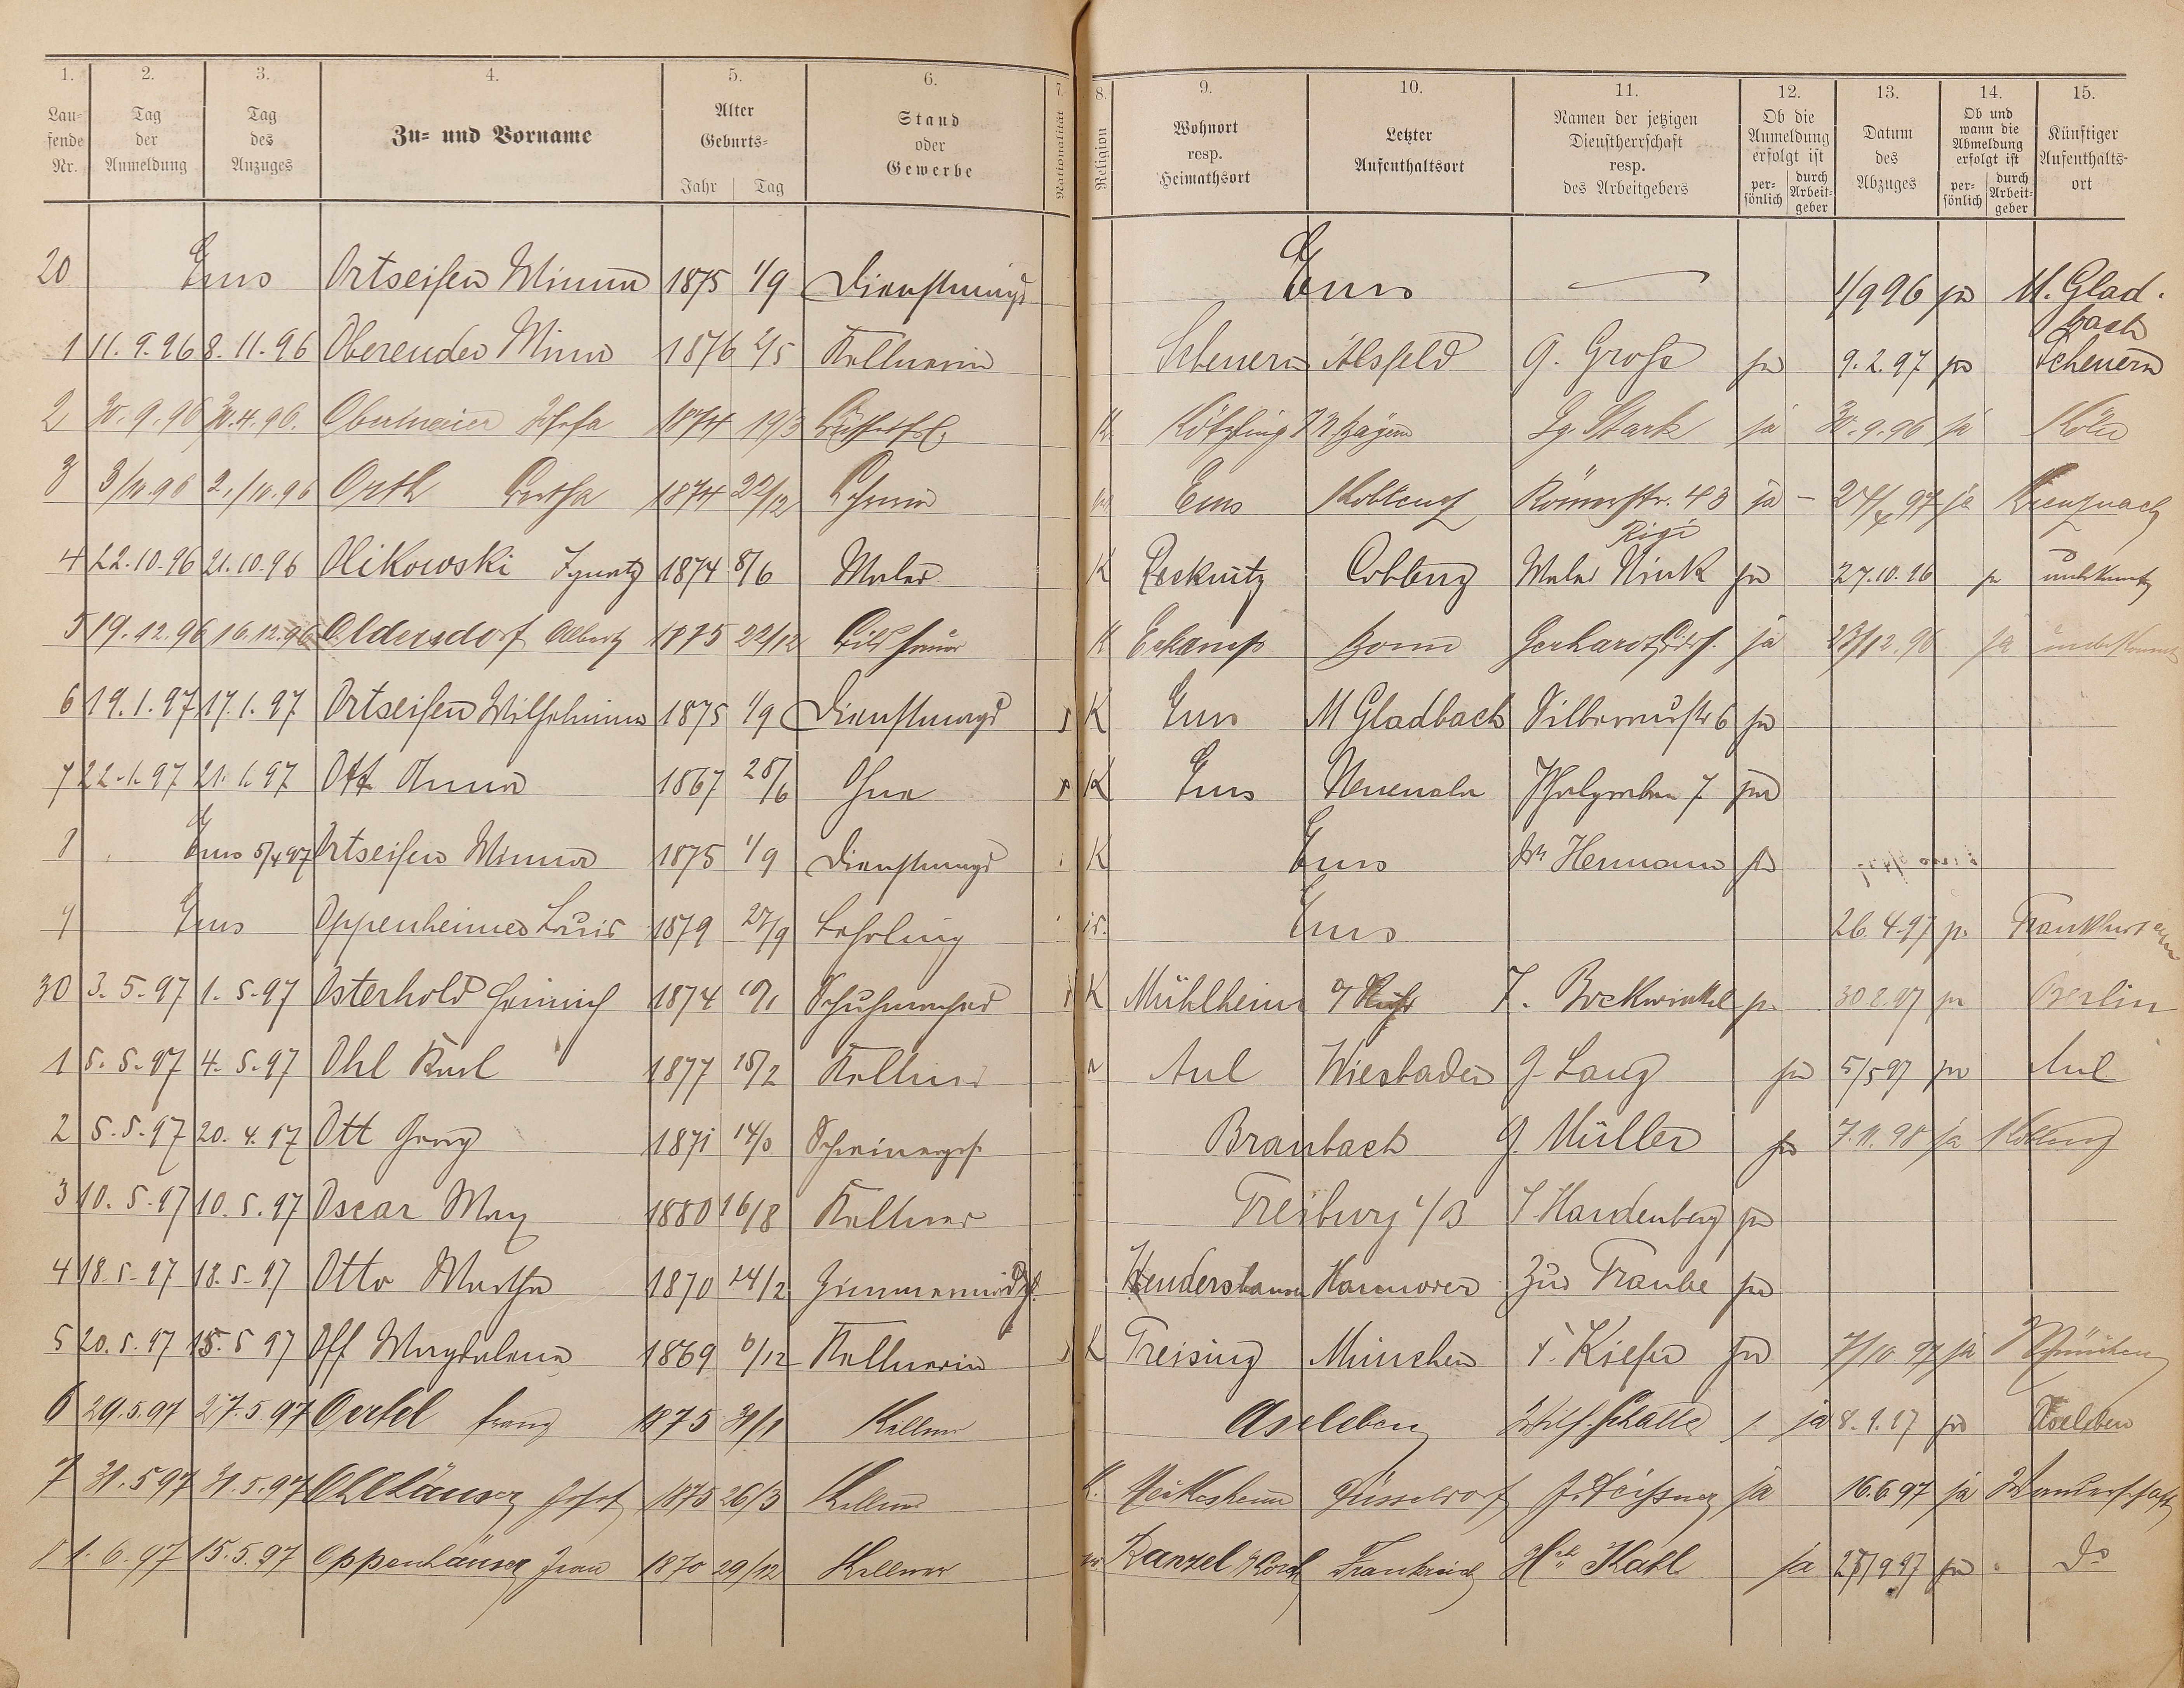 1. 2. 3. 4. 5. 6. 7. 8. 9. 10. 11. 12. 13. 14. 15.
Lau-
fende
Nr.
Tag
der
Anmeldung
Tag
des
Anzuges
Zu- und Vorname
Alter
Geburts-
Jahr Tag
Stand
oder
Gewerbe
Nationalität
Religion
Wohnort
resp.
Heimathsort
Letzter
Aufenthaltsort
Namen der jetzigen
Dienstherrschaft
resp.
des Arbeitgebers
Ob die
Anmeldung
erfolgt ist
per-
sönlich
durch
Arbeit-
geber
Datum
des
Abzuges
Ob und
wann die
Abmeldung
erfolgt ist
per-
sönlich
durch
Arbeit-
geber
Künftiger
Aufenthalts-
ort
20 Ems Ortseifen Minna 1875 1/9 Dienstmagd Ems — 1/9 96 ja M. Glad.
bach
1 11. 9. 96 8. 11. 96 Oberender Minna 1876 2/5 Kellnerin Scheuern Alsfeld G. Grosse ja 9. 2. 97 ja Scheuern
2 30. 9. 96 30. 4. 96. Obermeier Josefa 1874 19/3 K. Kötzting Stark ja 30. 9. 96 ja Köln
3 3/10. 96 2./10. 96 Orth Bertha 1874 22/12 Ems Koblenz Römerstr. 43 ja – 97 ja Kreuznach
Rigi
4 22. 10. 96 21. 10. 96 Olikowski Ignatz 1874 8/6 Maler K Recknitz Coblenz Maler Nink ja 27. 10. 96 ja unbekannt
5 19. 12. 96 16. 12. 96 Oldersdorf Albert 1875 22/12 Bildhauer K Bonn Gerhardt ja 23/12. 96 ja unbekannt
6 19. 1. 97 17. 1. 97 Ortseifen Wilhelmina 1875 1/9 Dienstmagd K Ems M Gladbach Silberaustr 6 ja
7 22. 1. 97 21. 1. 97 Ott Anna 1867 28/6 Ohne K Ems Neuenahr Pfahlgraben 7 ja
8 Ems 5/4 97 Ortseifen Minna 1875 1/9 Dienstmagd K Ems Hermann ja
9 Ems Oppenheimer Louis 1879 27/9 Lehrling is. Ems 26. 4. 97 ja Frankfurt a/M
30 3. 5. 97 1. 5. 97 Osterhold Heinrich 1874 10/1 Schuhmacher K Mühlheim a/ Ruhr F. Bockwinkel ja 30 8. 97 ja Berlin
1 5. 5. 97 4. 5. 97 Ohl Karl 1877 18/2 Kellner Aul Wiesbaden G Lang ja 5/5 97 ja Aul
2 5. 5. 97 20. 4. 97 Ott Georg 1871 Schreinergeh. Braubach G. Müller ja 7. 11. 98 ja Koblenz
3 10. 5. 97 10. 5. 97 Oscar Max 1880 16/8 Kellner Freiburg i/B Hardenberg ja
4 18. 5. 97 18. 5. 97 Otto Martha 1870 24/2 Hannover Zur Traube ja
5 20. 5. 97 15. 5 97 Off Magdalena 1869 6/12 Kellnerin K Freising München Kiefer ja 7/10. 97 ja München
6 29. 5. 97 27. 5. 97 Oertel Franz 1875 31/1 Kellner Aseleben Wilh. Schalle 1 ja 8. 9. 97 ja Aseleben
7 31. 5 97 31. 5. 97 Ohlhäuser Josef 1875 26/3 Kellner K. Düsseldorf ja 16. 6 97 ja Wanderschaft
8 1. 6. 97 15. 5. 97 Oppenhäuser Jean 1870 29/12 Kellner Kanzel Frankreich Kahl ja 25/9 97 ja Do